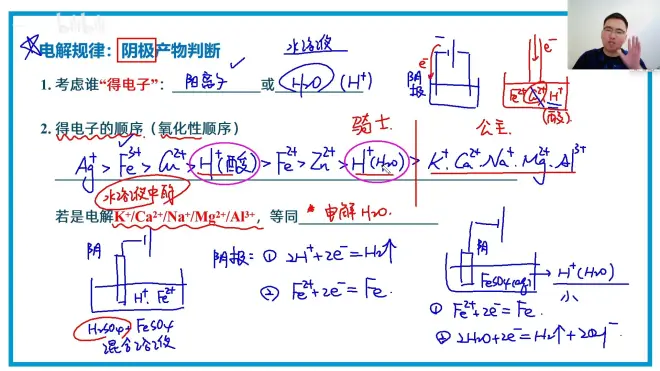 bilibili
电解规律：阴极产物判断
水溶液
1. 考虑谁“得电子”： 阳离子 或 H₂O (H⁺)
e⁻
阴极
e⁻
Fe²⁺ Cu²⁺ H⁺
(酸)
2. 得电子的顺序（氧化性顺序）
骑士
公主
Ag⁺ > Fe³⁺ > Cu²⁺ > H⁺(酸) > Fe²⁺ > Zn²⁺ > H⁺(H₂O) > K⁺.Ca²⁺.Na⁺.Mg²⁺.Al³⁺
水溶液中
若是电解K⁺/Ca²⁺/Na⁺/Mg²⁺/Al³⁺，等同 * 电解H₂O.
阴
H⁺. Fe²⁺
H₂SO₄+FeSO₄
混合溶液
阴极：① 2H⁺+2e⁻=H₂↑
② Fe²⁺+2e⁻=Fe.
阴
FeSO₄(aq)
H⁺(H₂O)
小
① Fe²⁺+2e⁻=Fe.
② 2H₂O+2e⁻=H₂↑+2OH⁻